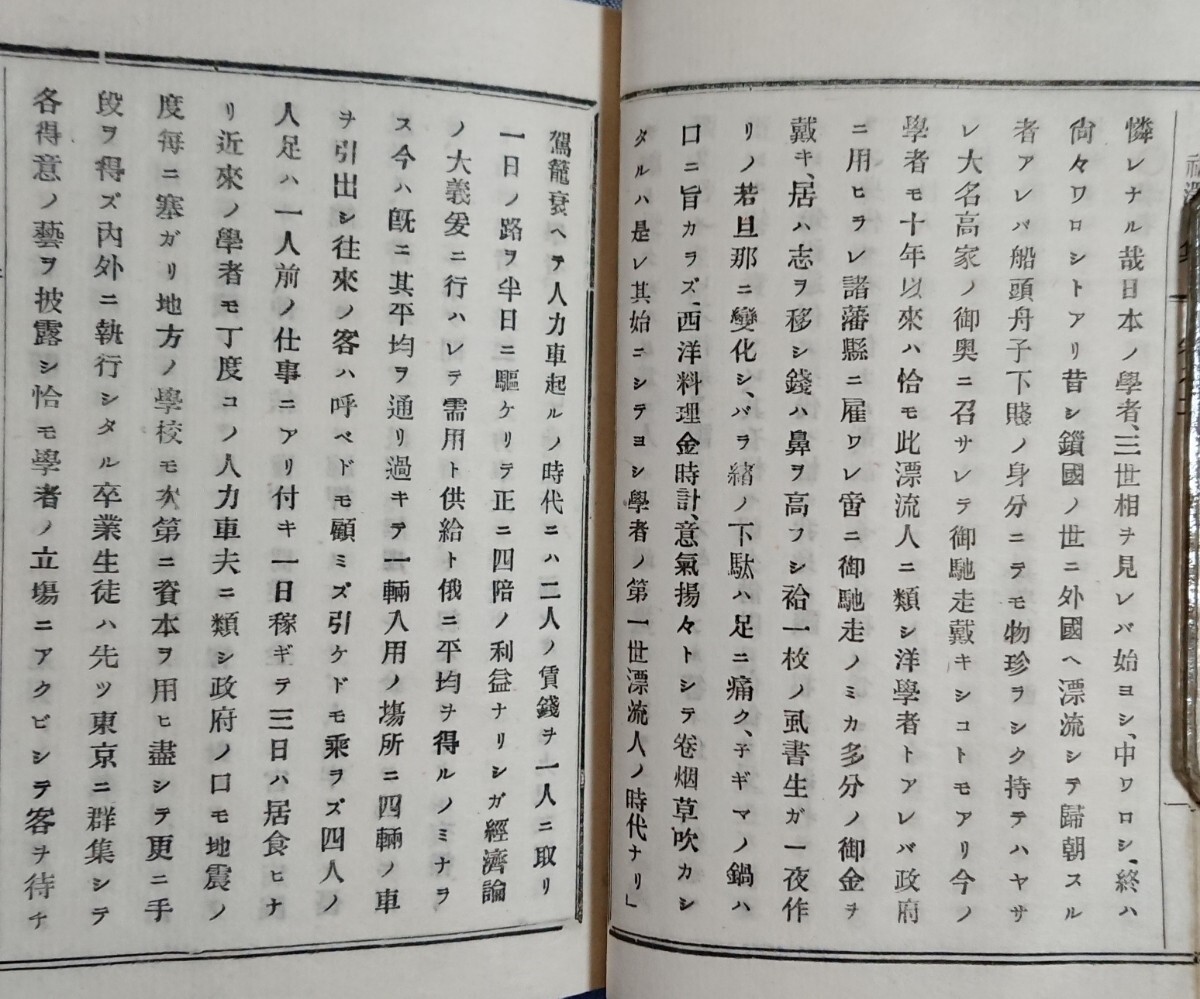 憐レナル哉日本ノ學者、三世相ヲ見レバ始ヨシ、中ワロシ、終ハ
尙々ワロシトアリ昔シ鎖國ノ世ニ外國ヘ漂流シテ歸朝スル
者アレバ船頭舟子下賤ノ身分ニテモ物珍ヲシク持テハヤサ
レ大名高家ノ御奧ニ召サレテ御馳走戴キシコトモアリ今ノ
學者モ十年以來ハ恰モ此漂流人ニ類シ洋學者トアレバ政府
ニ用ヒラレ諸藩縣ニ雇ワレ啻ニ御馳走ノミカ多分ノ御金ヲ
戴キ、居ハ志ヲ移シ錢ハ鼻ヲ高フシ袷一枚ノ虱書生ガ一夜作
リノ若旦那ニ變化シ、バラ緖ノ下駄ハ足ニ痛ク、子ギマノ鍋ハ
口ニ旨カラズ、西洋料理金時計、意氣揚々トシテ卷烟草吹カシ
タルハ是レ其始ニシテヨシ學者ノ第一世漂流人ノ時代ナリ」
駕籠衰ヘテ人力車起ルノ時代ニハ二人ノ賃錢ヲ一人ニ取リ
一日ノ路ヲ半日ニ驅ケリテ正ニ四陪ノ利益ナリシガ經濟論
ノ大義爰ニ行ハレテ需用ト供給ト俄ニ平均ヲ得ルノミナラ
ス今ハ既ニ其平均ヲ通リ過キテ一輛入用ノ塲所ニ四輛ノ車
ヲ引出シ往來ノ客ハ呼ベドモ顧ミズ引ケドモ乘ラズ四人ノ
人足ハ一人前ノ仕事ニアリ付キ一日稼ギテ三日ハ居食ヒナ
リ近來ノ學者モ丁度コノ人力車夫ニ類シ政府ノ口モ地震ノ
度每ニ塞ガリ地方ノ學校モ次第ニ資本ヲ用ヒ盡シテ更ニ手
段ヲ得ズ內外ニ執行シタル卒業生徒ハ先ツ東京ニ群集シテ
各得意ノ藝ヲ披露シ恰モ學者ノ立塲ニアクビシテ客ヲ待チ